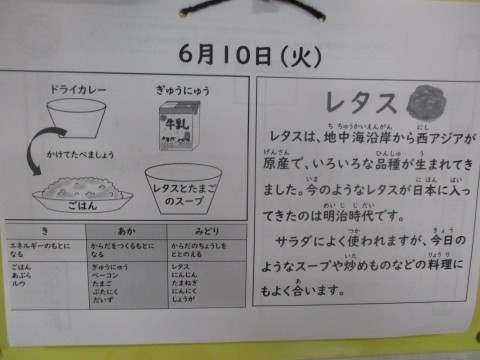 6月10日(火)
ドライカレー
ぎゅうにゅう
牛乳
かけてたべましょう
ごはん
レタスとたまご
のスープ
き
あか
みどり
エネルギーのもとに
なる
からだをつくるもとに
なる
からだのちょうしを
ととのえる
ごはん
あぶら
ルウ
ぎゅうにゅう
ベーコン
たまご
ぶたにく
だいず
レタス
にんじん
たまねぎ
にんにく
しょうが
レタス
レタスは、地中海沿岸から西アジアが
原産で、いろいろな品種が生まれてき
ました。今のようなレタスが日本に入っ
てきたのは明治時代です。
サラダによく使われますが、今日の
ようなスープや炒めものなどの料理に
もよく合います。